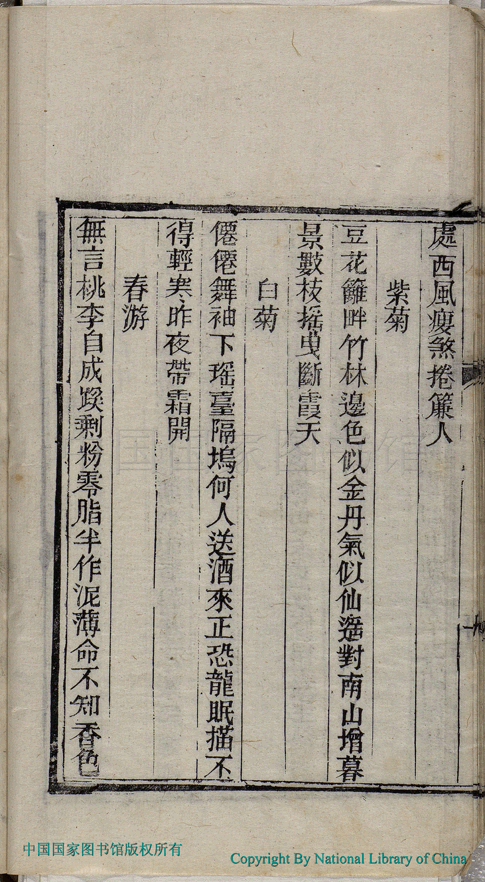 處西風瘦煞捲簾人
紫菊
豆花籬畔竹林邊色似金丹氣似仙遥對南山增暮
景數枝搖曳斷霞天
白菊
僊僊舞袖下瑤臺隔塢何人送酒來正恐龍眠描不
得輕寒昨夜帶霜開
春游
無言桃李自成蹊剩粉零脂半作泥薄命不知香色
中国国家图书馆版权所有
Copyright By National Library of China